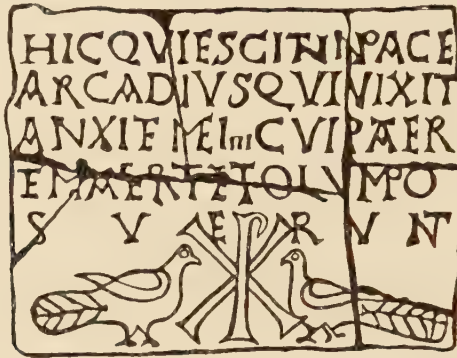 HICQVIESCITINPACE
ARCADIVSQVIVIXIT
ANXIE MEIIIICVIPAER
EMAERTITOLVMPO
S V E R V NT